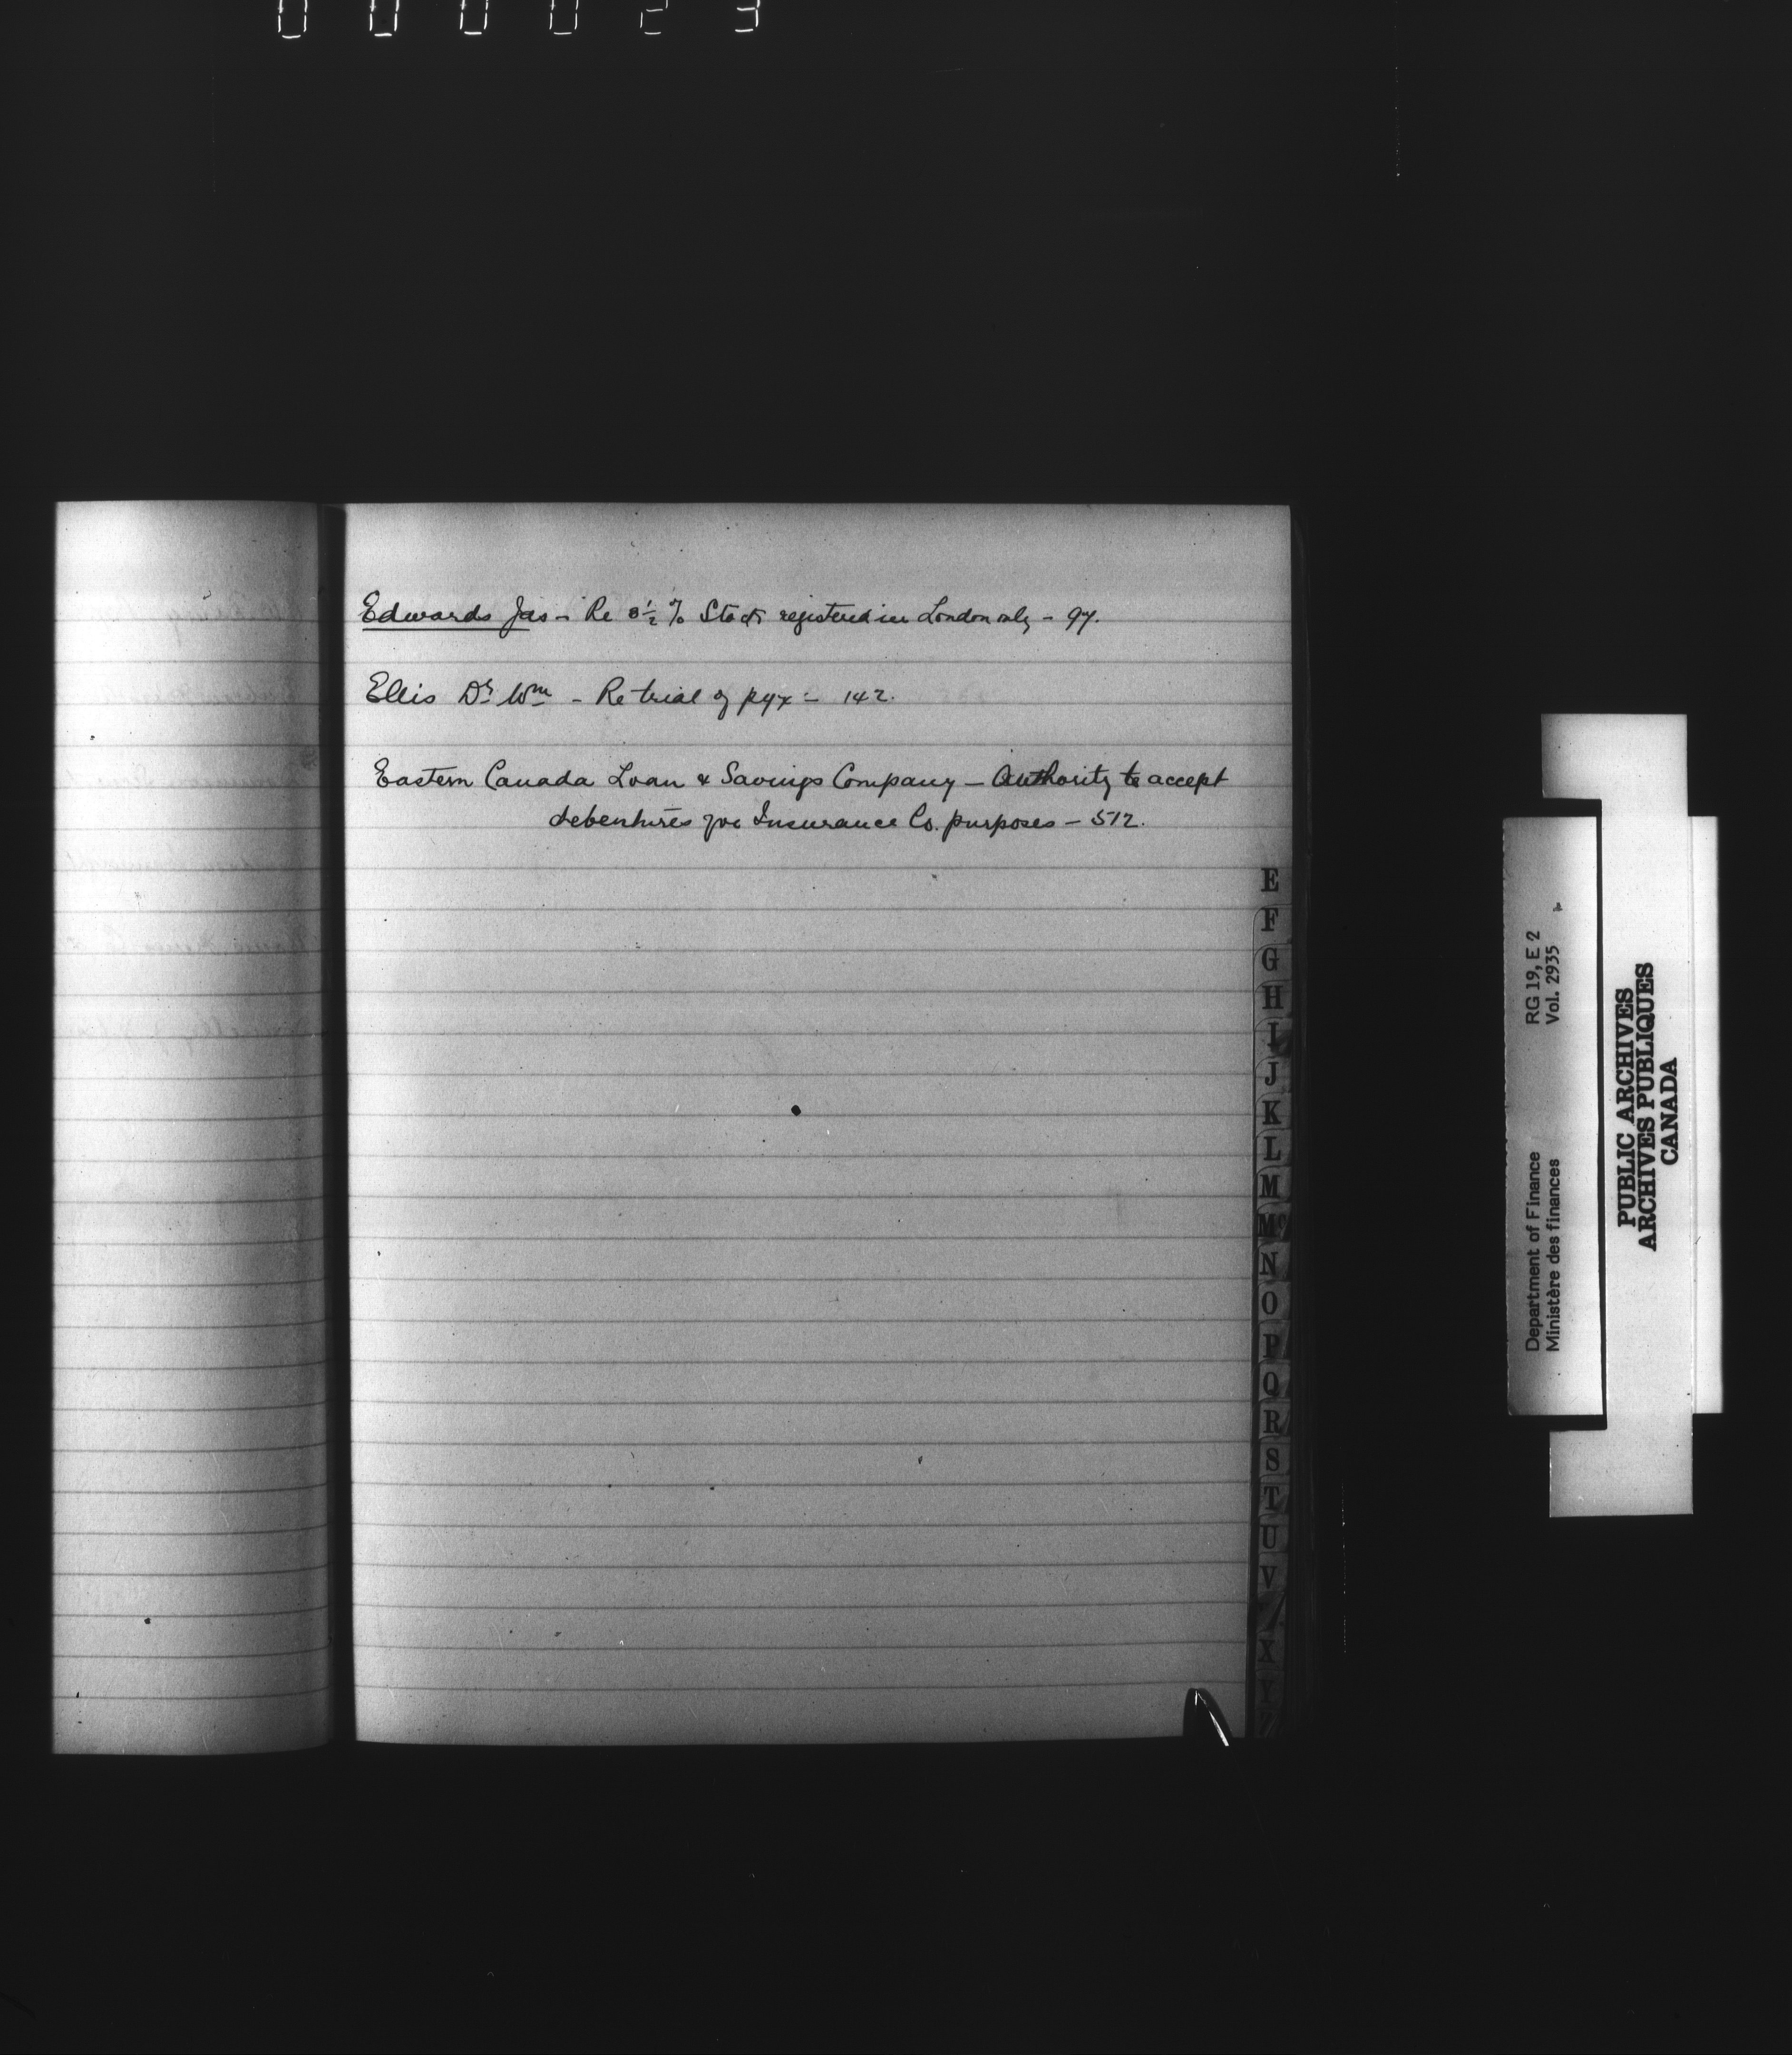 000023
Edwards Jas - Re 3½ % Stock registered in London only - 97.
Ellis Dr Wm - Re trial of pyx - 142.
Eastern Canada Loan & Savings Company - Authority to accept
debentures for Insurance Co. purposes - 512.
E
F
G
H
I
J
K
L
M
Mc
N
O
P
Q
R
S
T
U
V
X
Y
Department of Finance RG 19, E 2
Ministère des finances Vol. 2935
PUBLIC ARCHIVES
ARCHIVES PUBLIQUES
CANADA